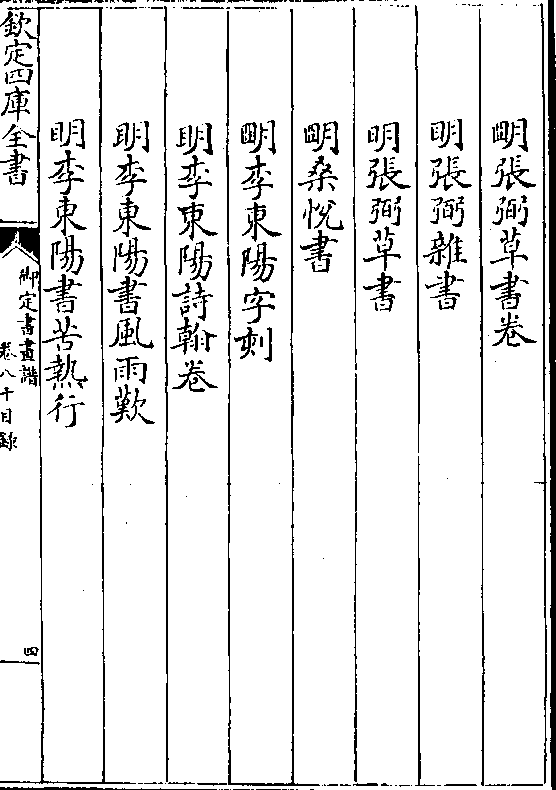 明張弼草書卷
明張弼雜書
明張弼草書
明桑悅書
明李東陽字刻
明李東陽詩翰卷
明李東陽書風雨歎
明李東陽書苦熱行
欽定四庫全書
御定書畫譜
卷八十目錄
四